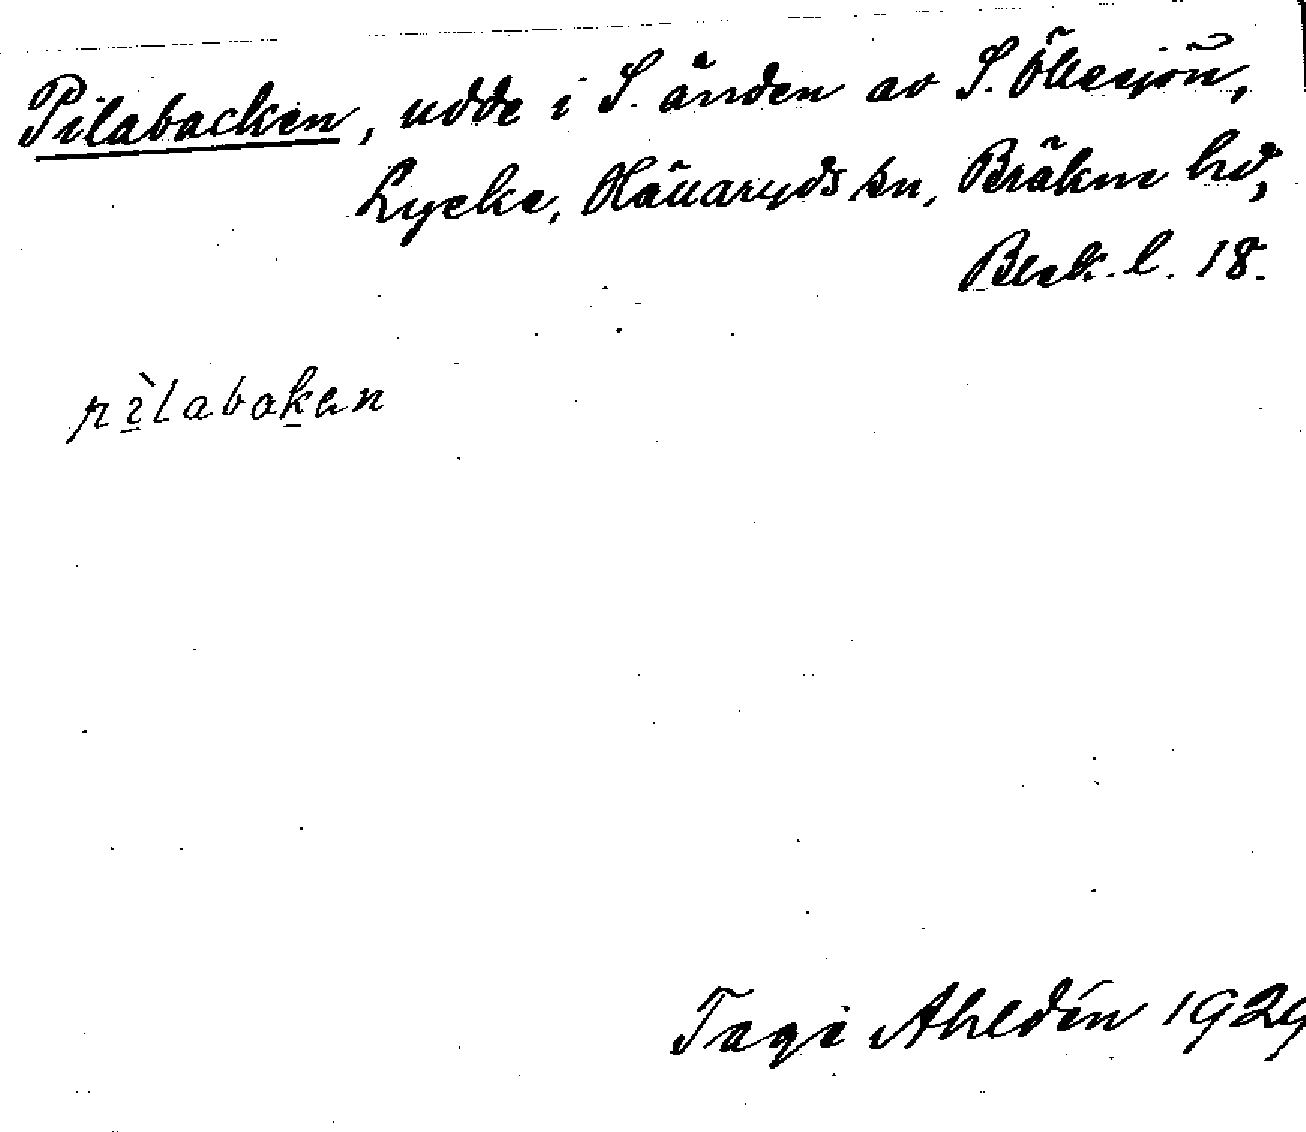 Pilabacken, udde i S. änden av S. Öllesjön,
Lycke, Hällaryds sn, Bräkne hd,
Blek. l. 18.
pìlabaken
Tage Ahldén 1929